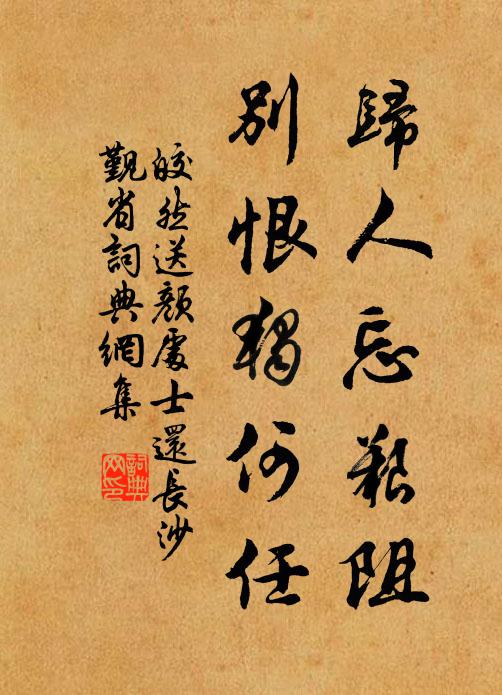 歸人忘艱阻
別恨獨何任
皎然送顏處士還長沙
覲省詞典網集
詞典
网印